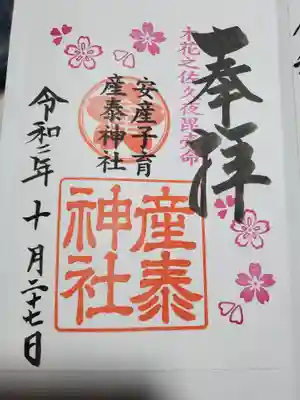 奉拝
木花之佐久夜毘売命
安産子育
産泰神社
産泰
神社
令和二年十月二十七日